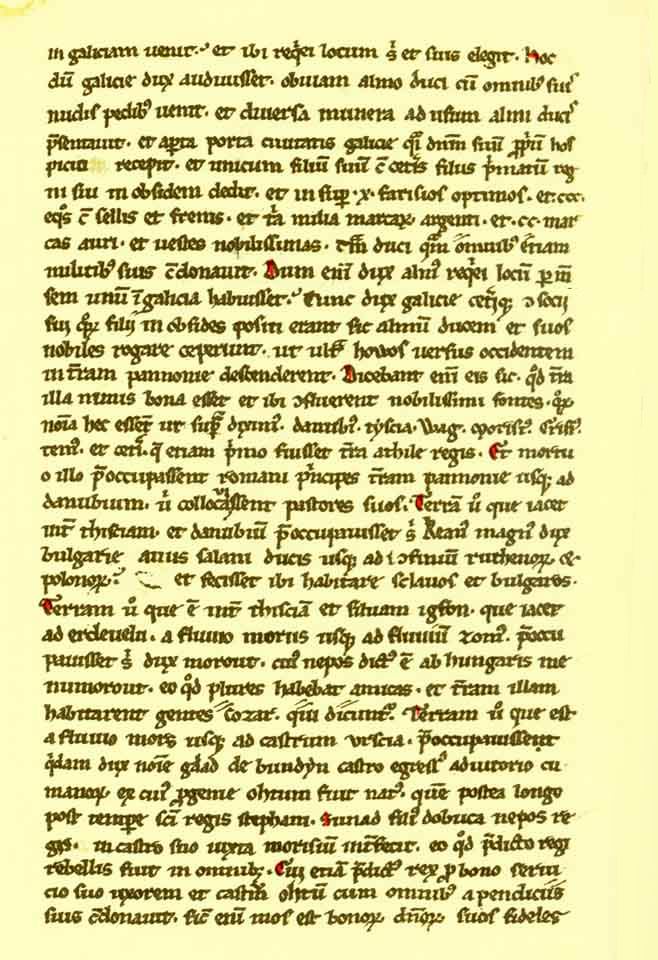 in galiciam uenit. et ibi req̇ei locum s̄ et suis elegit. Hoc
dū galicie dux audiuisset. obuiam almo duci cū omnibꝰ suis
nudis pedibꝰ uenit. et diuersa munera ad usum almi ducis
p̄sentauit. et aꝑta porta ciuitatis galicie q̄i dn̄m suū ꝓpͥū hos
picio recepit. et unicum filiū suū c̄ ceteris filijs pͥmatū reg
ni sui in obsidem dedit. et in suꝑ .x. farisios optimos. et .ccc.
eqͦs c̄ sellis et frenis. et tͥa milia marcaꝝ argenti. et .cc. mar
cas auri. et uestes nobilissimas. tā duci q̄m omnibꝰ etiam
militibꝰ suis ꝯdonauit. Dum eni dux almꝰ reqͥei locū ꝑ m̄
sem unū in galicia habuisset. Tunc dux galicie ceteriqꝫ ꝯsocij
sui quoꝝ filij in obsides positi erant sic almū ducem et suos
nobiles rogare ceperunt. ut ultͣ howos uersus occidentem
in tr̄am pannonie descenderent. Dicebant eni eis sic. qͦd tr̄a
illa nimis bona esset et ibi ꝯfluerent nobilissimi fontes. quoꝝ
noīa hec essent ut supͣ diximꝰ. danubiꝰ. tyscia. Wag. Moristꝰ. Crisiꝰ.
temꝰ. et ceteri. q̄ etiam pͥmo fuisset tr̄a athile regis. Et mortu
o illo p̄occupassent romani pͥncipes tr̄am pannonie usqꝫ ad
danubium. ubi collocauissent pastores suos. Terrā ū que iacet
int̄ thisciam et danubiū p̄occupauisset s̄ Keanꝰ magnꝰ dux
bulgarie auus salani ducis usqꝫ ad ꝯfiniū ruthenoꝝ et
polonoꝝ. et fecisset ibi habitare sclauos et bulgaros.
Terram ū que ē int̄ thisciā et siluam igfon. que iacet
ad erdeuelu. a fluuio morus usqꝫ ad fluuiū zomus. p̄occu
pauisset s̄ dux morout. cuiꝰ nepos dictꝰ ē ab hungaris me
numorout. eo qͦd plures habebat amicas. et tr̄am illam
habitarent gentes cozar. qui dicuntꝰ. Terram ū que est
a fluuio mors usqꝫ ad castrum vrscia. p̄occupauissent
qͥdam dux noīe glad de bundyn castro egressꝰ adiutorio cu
manoꝝ. ex cuiꝰ ꝓgenie ohtum fuit natꝰ. quē postea longo
post tempore sc̄i regis stephani. Sunad filiꝰ dobuca nepos re
gis. in castro suo iuxta morisiū int̄fecit. eo qͦd p̄dicto regi
rebellis fuit in omnibꝫ. Cui etiā p̄dictꝰ rex ꝓ bono serui
cio suo uxorem et castrū ohtū cum omnibꝰ apendiciis
suis ꝯdonauit. sicut eni mos est bonoꝝ dn̄oꝝ suos fideles